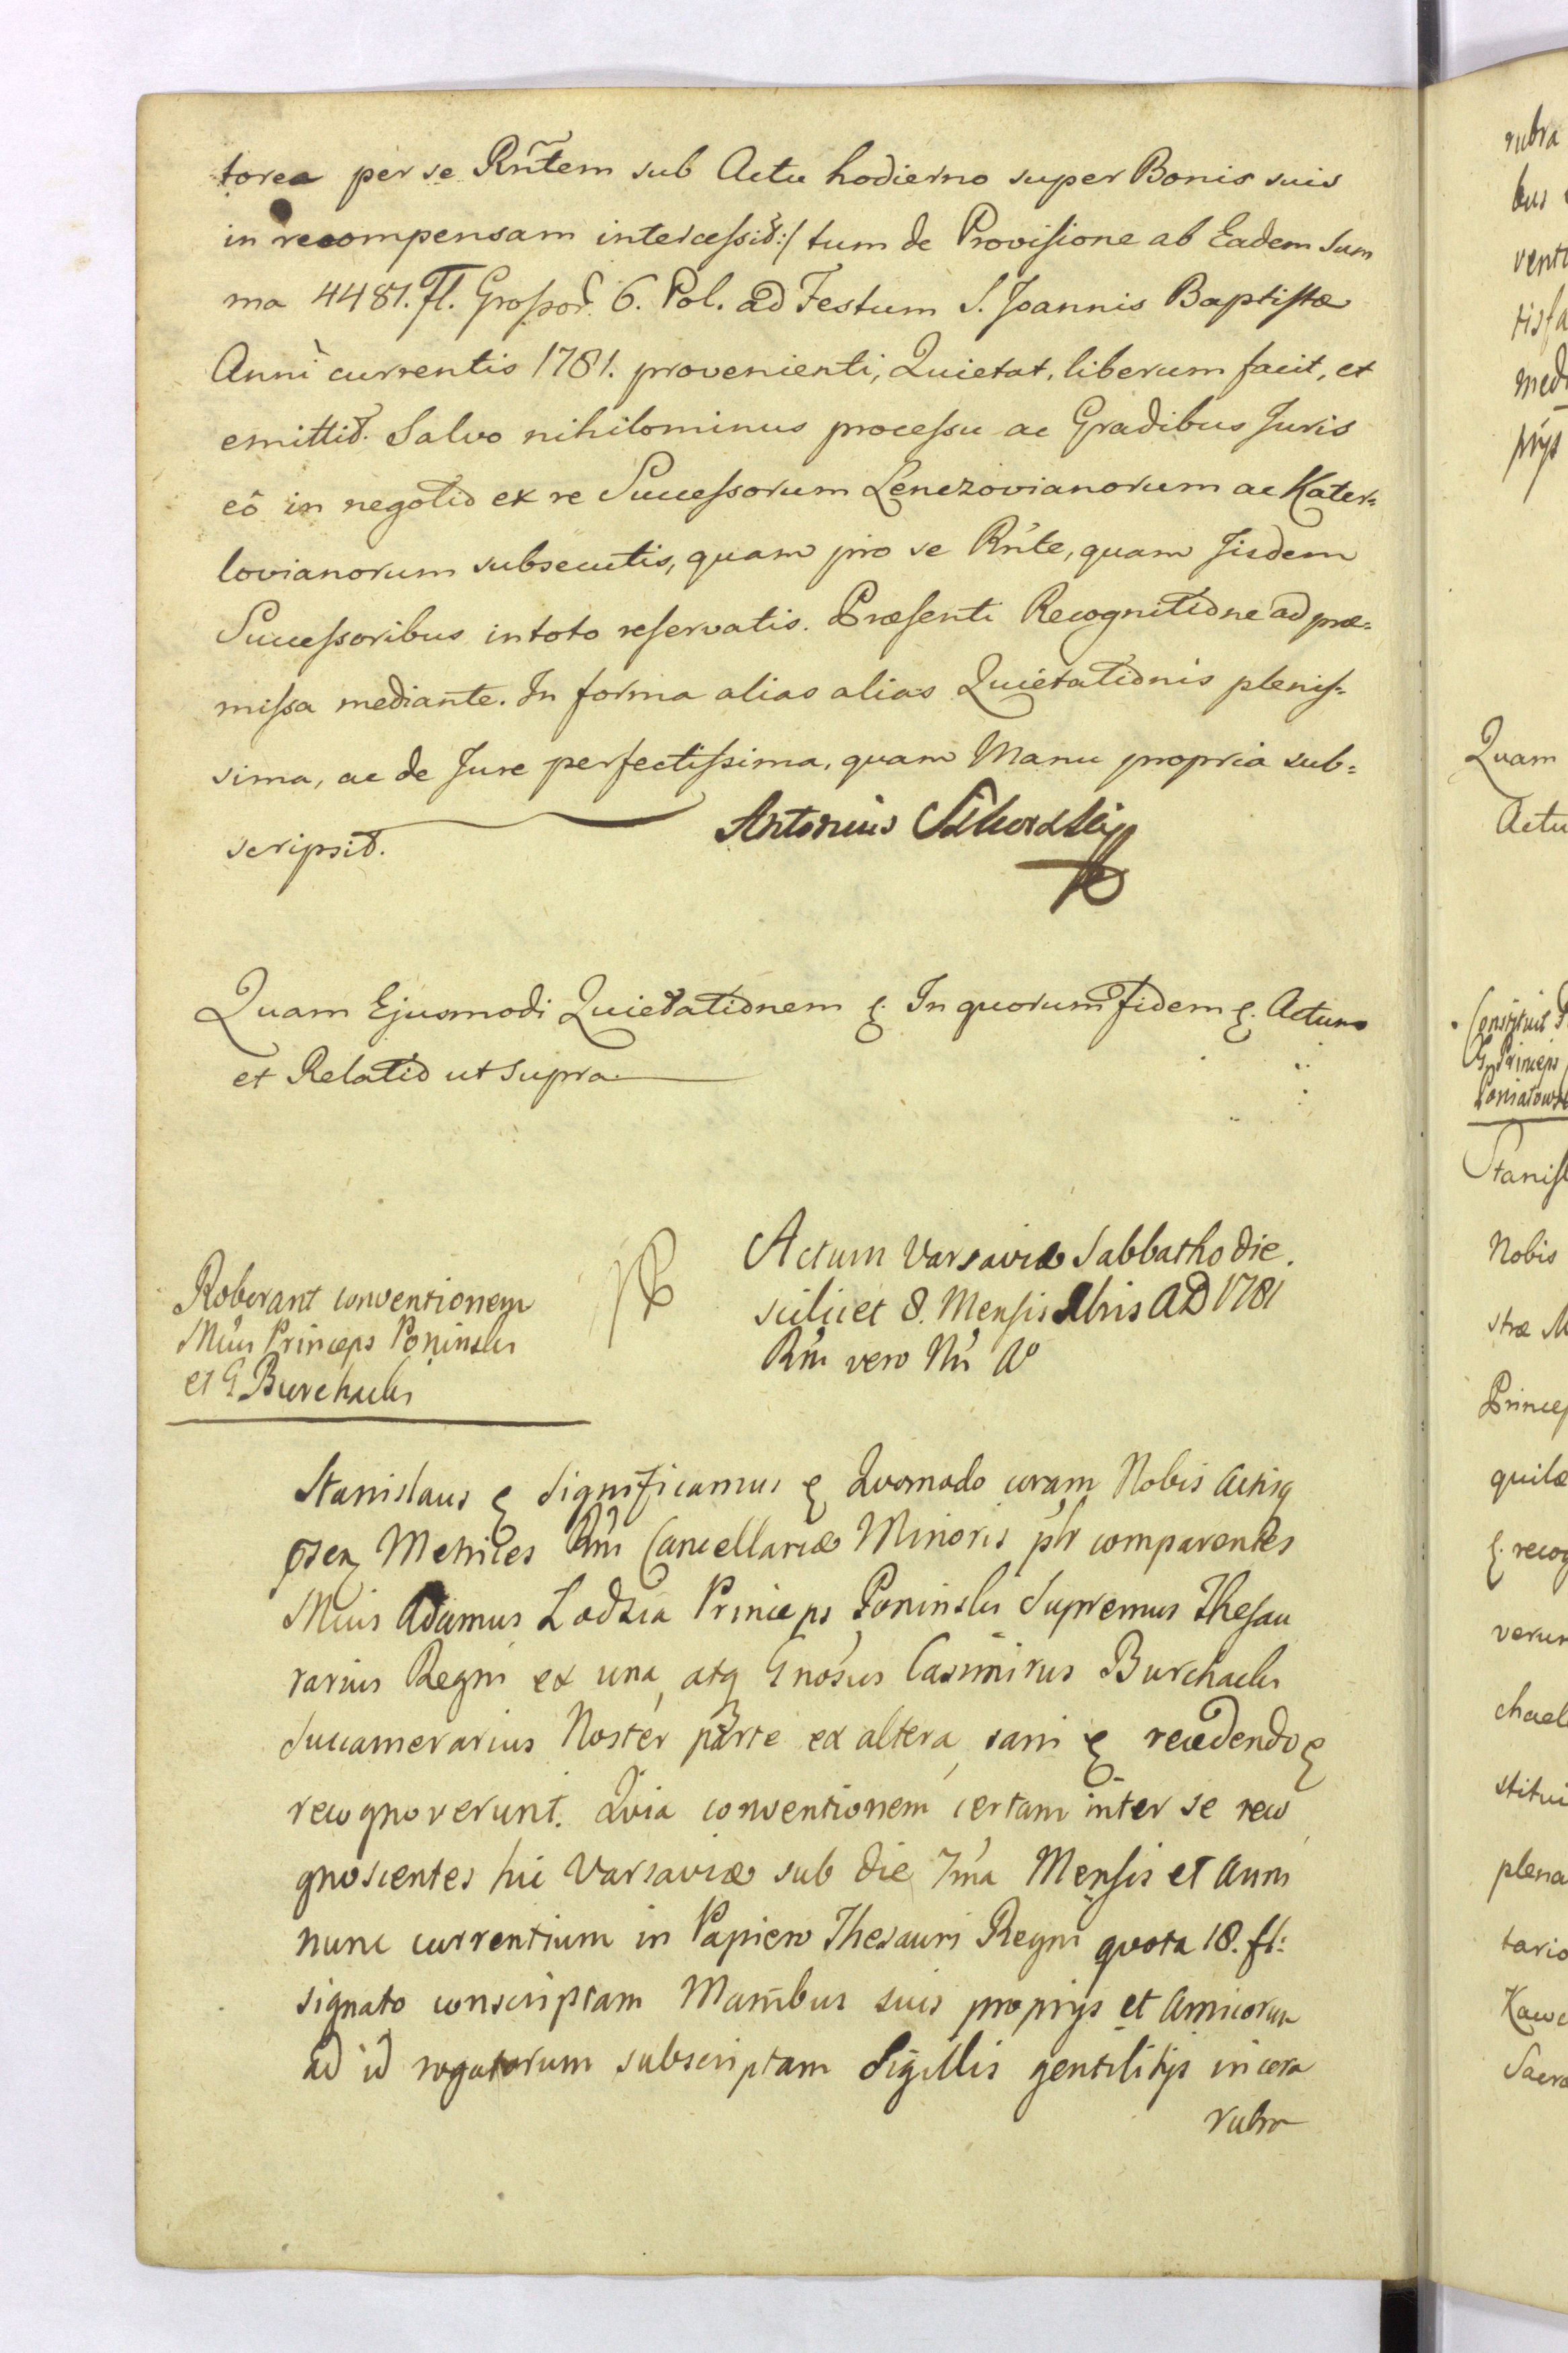 torea per se Rñtem sub Actu hodierno super Bonis suis
in recompensam intercessit:/ tum de Provisione ab Eadem Sum
ma 4481. Fl. Grossor. 6. Pol. ad Festum S. Joannis Baptistæ
Anni currentis 1781. provenienti, Quietat, liberum facit, et
emittit. Salvo nihilominus processu ac Gradibus Juris
eô in negotio ex re Successorum Lenczovianorum ac Kater=
lovianorum subsecutis, quam pro se Rñte, quam Jisdem
Successoribus in toto reservatis. Præsenti Recognitione ad præ=
missa mediante. In forma alias alias Quietationis plenis=
sima, ac de Jure perfectissima, quam Manu propria sub=
scripsit.
Antonius Sikorski
Quam Ejusmodi Quietationem &. In quorum fidem &. Actum
et Relatio ut supra.
Actum Varsaviæ Sabbatho die.
scilicet 8. Mensis Xbris AD 1781
Rni vero Nri Aº
Roborant conventionem
Mcus Princeps Poninski
et G Burchacki
Stanislaus & Significamus & Quomodo coram Nobis Actisq
Metrices Rni Cancellariæ Minoris plr comparentes
Mcus Adamus Lodzia Princeps Poninski Supremus Thesau
rarius Regni ex una, atq Gnosus Casimirus Burchacki
Succamerarius Noster parte ex altera, sani & recedendo &
recognoverunt. Quia conventionem certam inter se reco
gnoscentes hic Varsaviæ sub die 7ma Mensis et Anni
nunc currentium in Papiero Thesauri Regni quota 18. fl:
signato conscriptam Manibus suis proprijs et Amicorum
ad id rogatorum subscriptam Sigillis gentilitijs in cera
rubra
rubra
Quam
Actu
Nobis